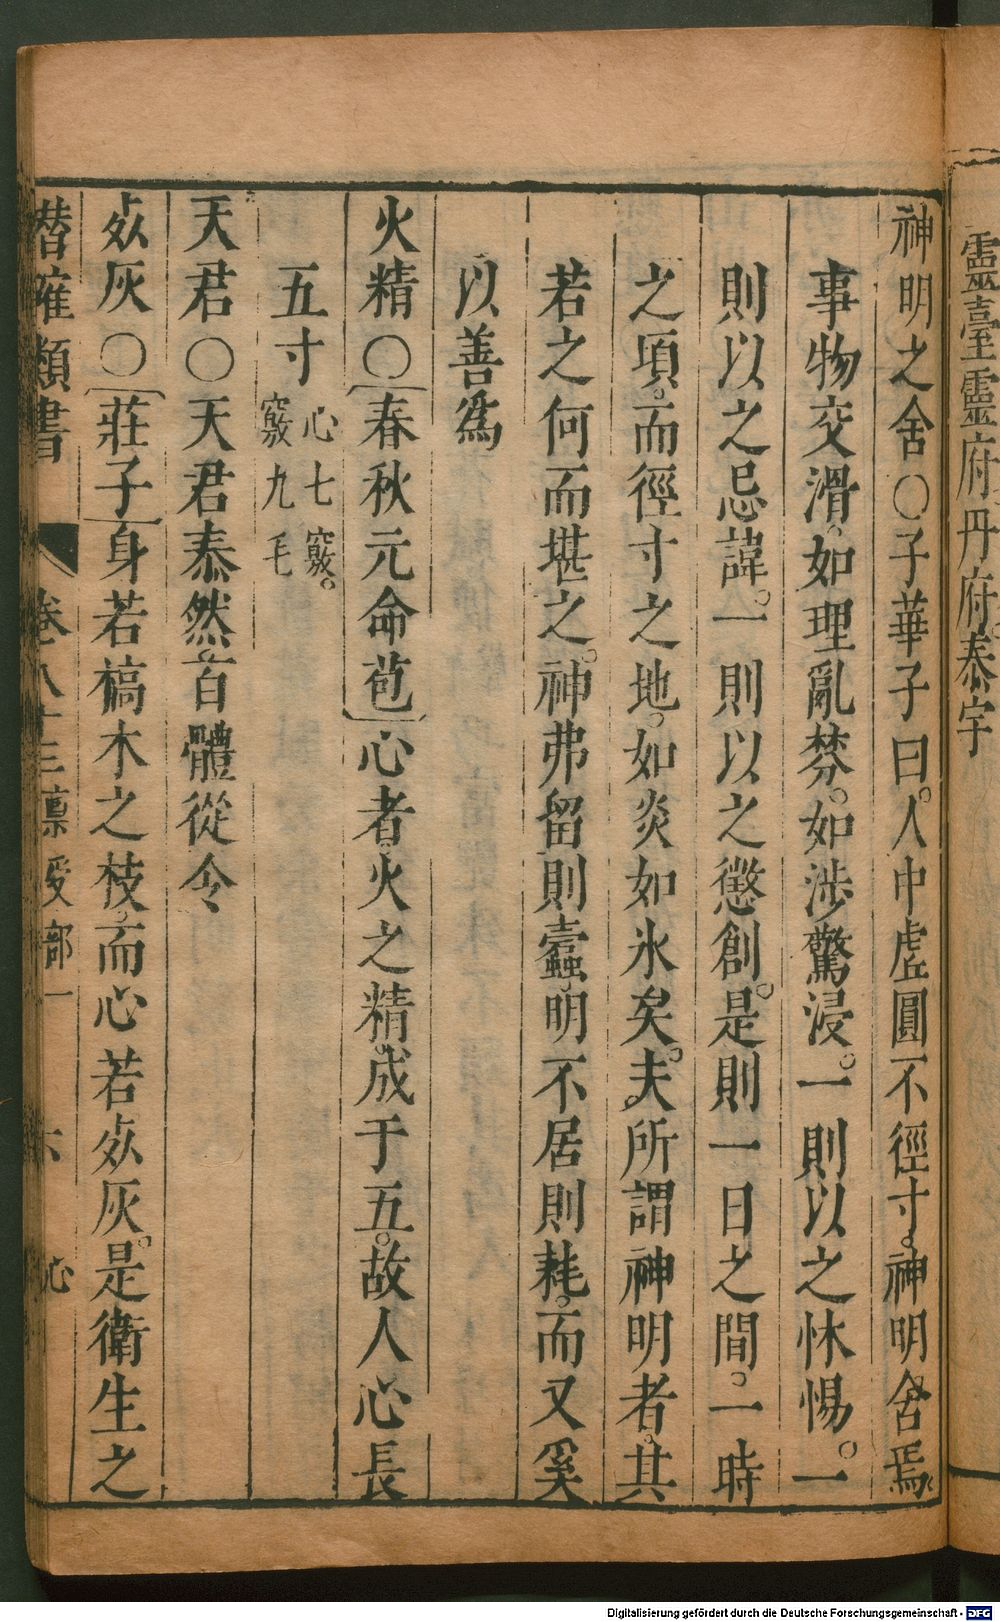 靈臺靈府丹府泰宇
神明之舍○子華子曰。人中虛圓不徑寸。神明舍焉。
事物交滑。如理亂棼。如涉驚浸。一則以之怵惕。一
則以之忌諱。一則以之懲創。是則一日之間。一時
之項。而徑寸之地。如炎如氷矣。夫所謂神明者。其
若之何而堪之。神弗留則蠹。明不居則耗。而又奚
以善爲
火精○春秋元命苞心者。火之精。成于五。故人心長
五寸心七竅。
竅九毛
天君○天君泰然。百體從令
㱠灰○莊子身若槁木之枝。而心若㱠灰。是衛生之
潛確類書 卷八十三 稟受部一 六 心
Digitalisierung gefördert durch die Deutsche Forschungsgemeinschaft - DFG